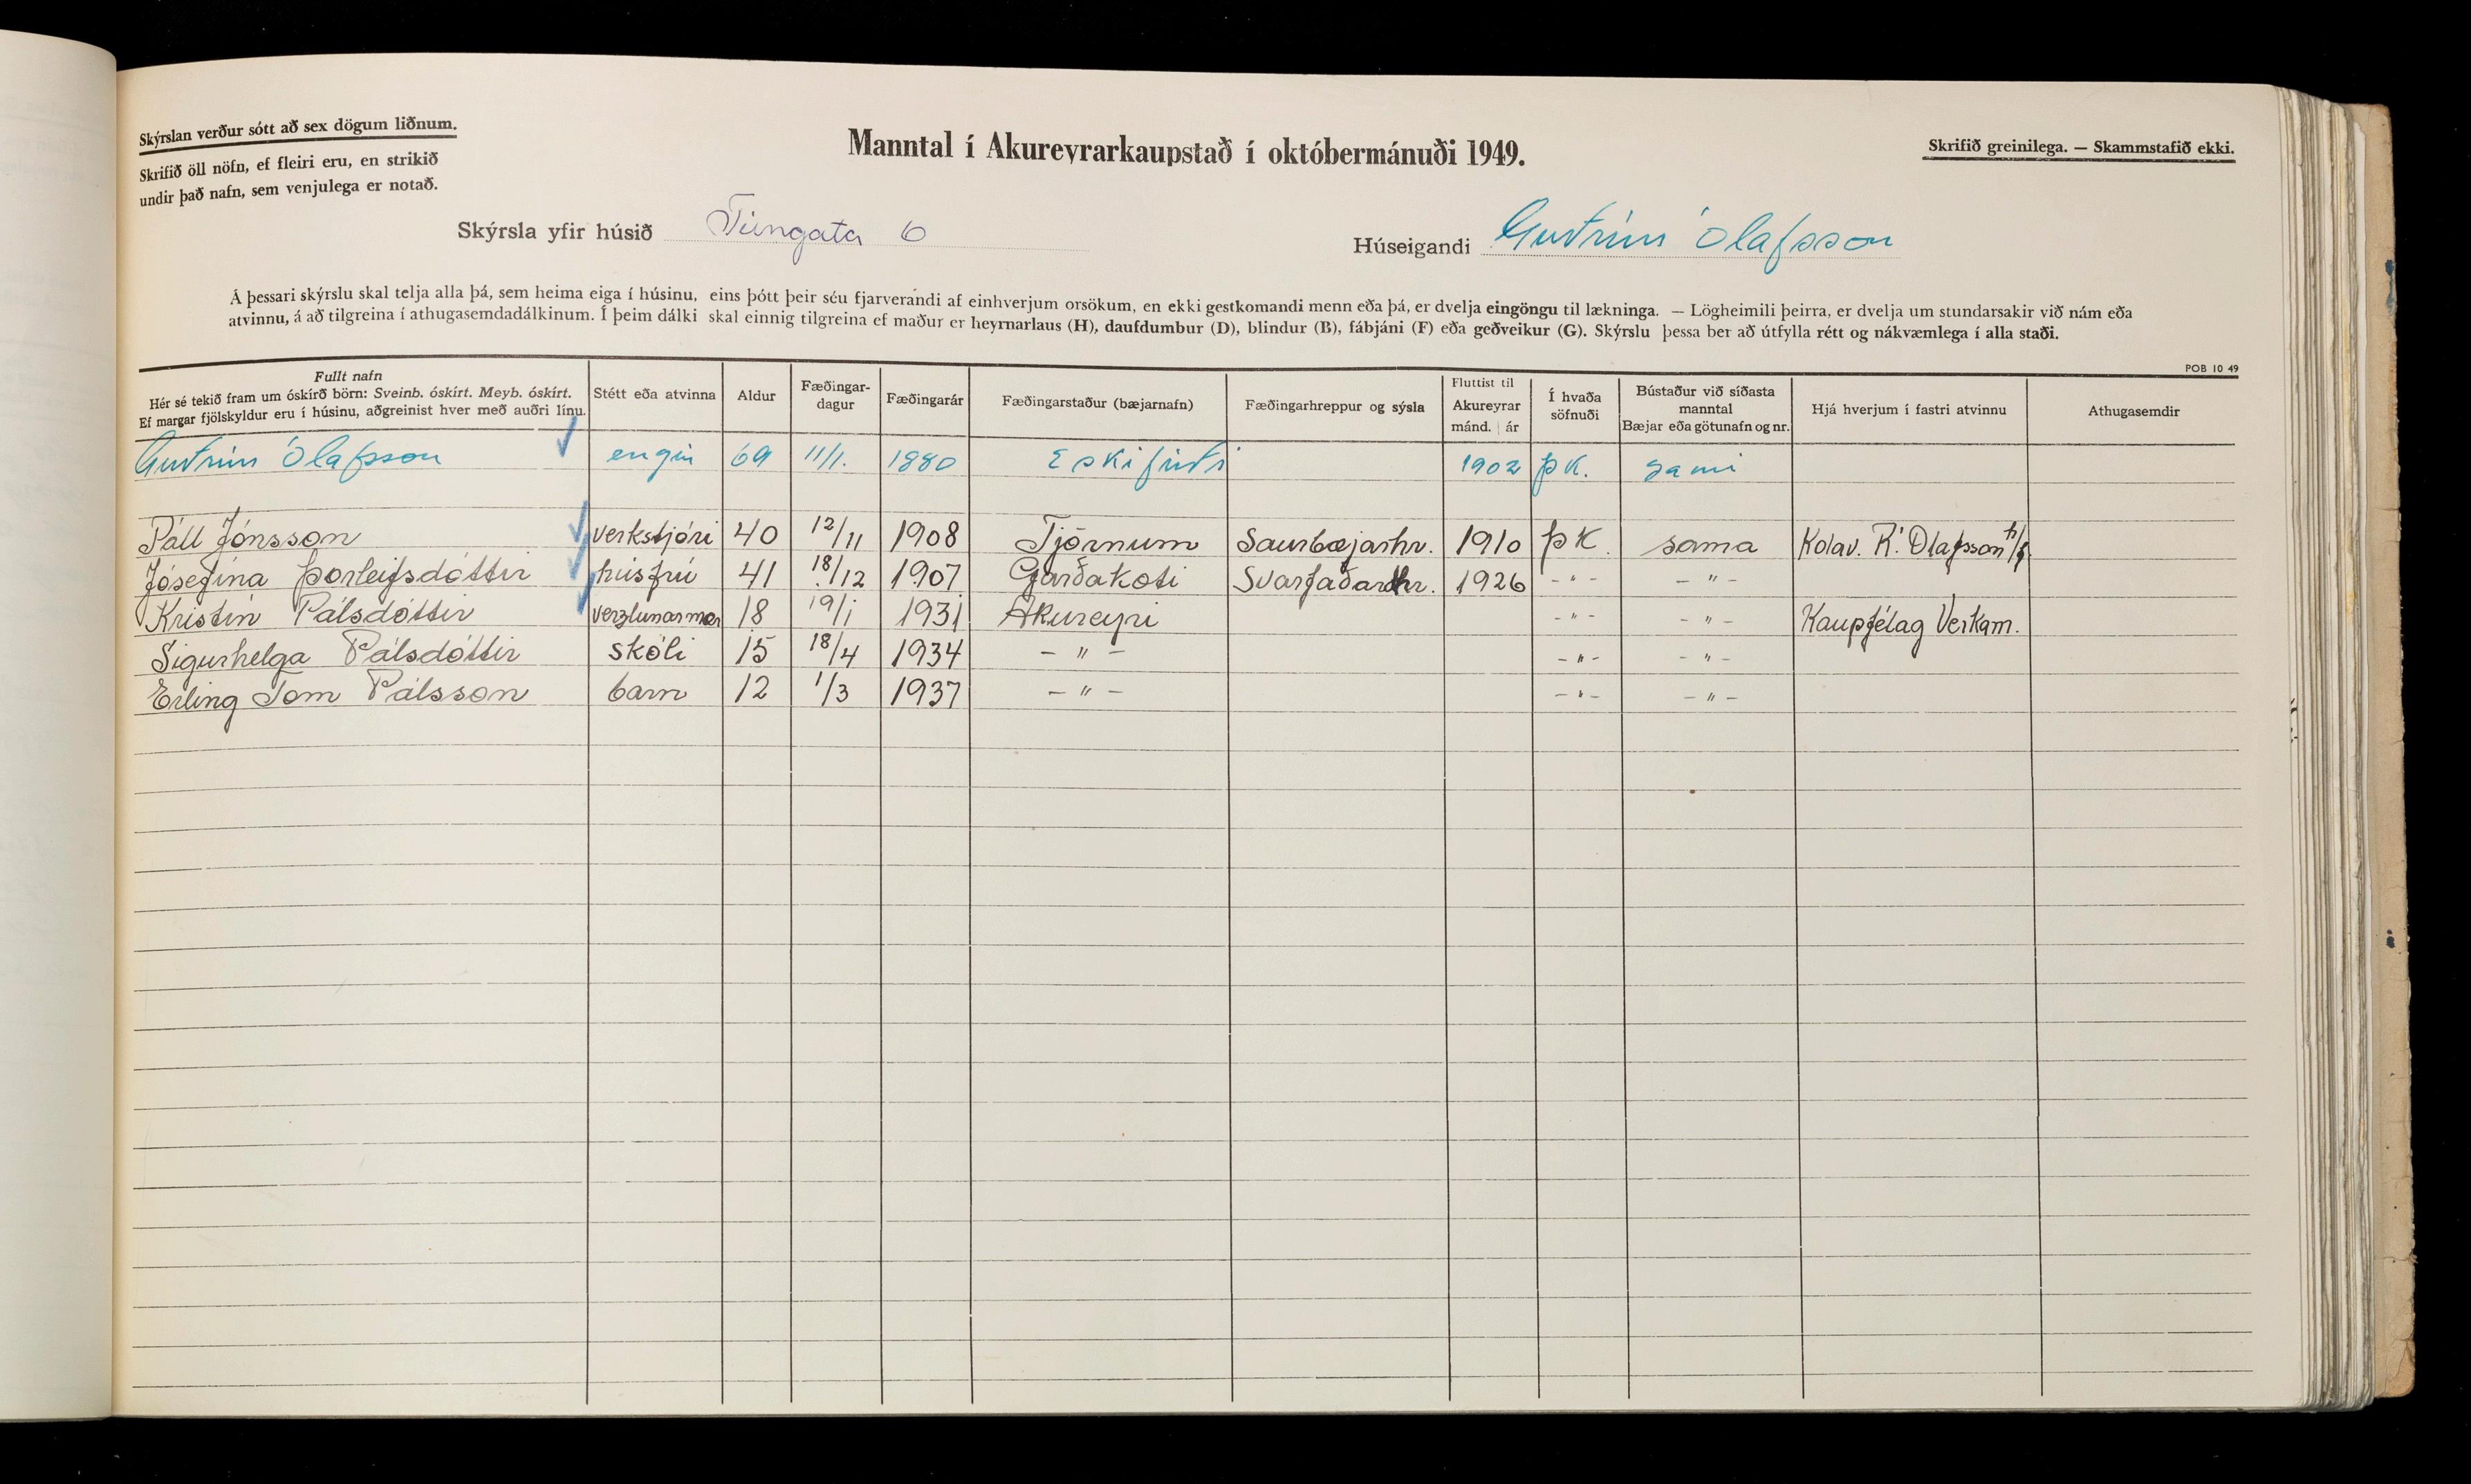 Skýrslan verður sótt að sex dögum liðnum.
Skrifið öll nöfn, ef fleiri eru, en strikið
undir það nafn, sem venjulega er notað.
Manntal í Akureyrarkaupstað í októbermánuði 1949.
Skrifið greinilega. — Skammstafið ekki.
Skýrsla yfir húsið Túngata 6
Húseigandi Guðrún Ólafsson
Á þessari skýrslu skal telja alla þá, sem heima eiga í húsinu, eins þótt þeir séu fjarverandi af einhverjum orsökum, en ekki gestkomandi menn eða þá, er dvelja eingöngu til lækninga. — Lögheimili þeirra, er dvelja um stundarsakir við nám eða
atvinnu, á að tilgreina í athugasemdadálkinum. Í þeim dálki skal einnig tilgreina ef maður er heyrnarlaus (H), daufdumbur (D), blindur (B), fábjáni (F) eða geðveikur (G). Skýrslu þessa ber að útfylla rétt og nákvæmlega í alla staði.
POB 10 49
Fullt nafn
Hér sé tekið fram um óskírð börn: Sveinb. óskírt. Meyb. óskírt.
Ef margar fjölskyldur eru í húsinu, aðgreinist hver með auðri línu.
Stétt eða atvinna
Aldur
Fæðingar-
dagur
Fæðingarár
Fæðingarstaður (bæjarnafn)
Fæðingarhreppur og sýsla
Fluttist til
Akureyrar
mánd. | ár
Í hvaða
söfnuði
Bústaður við síðasta
manntal
Bæjar eða götunafn og nr.
Hjá hverjum í fastri atvinnu
Athugasemdir
Guðrún Ólafsson engin 69 11/1. 1880 Eskifirði 1902 þk. sami
Páll Jónsson verkstjóri 40 12/11 1908 Tjörnum Saurbæjarhr. 1910 þK. sama Kolav. R. Ólafsson h/f
Jósefína Þorleifsdóttir húsfrú 41 18/12 1907 Garðakoti Svarfaðardhr. 1926 -"- -"-
Kristín Pálsdóttir verzlunarmær 18 19/1 1931 Akureyri -"- -"- Kaupfélag Verkam.
Sigurhelga Pálsdóttir skóli 15 18/4 1934 -"- -"- -"-
Erling Tom Pálsson barn 12 1/3 1937 -"- -"- -"-